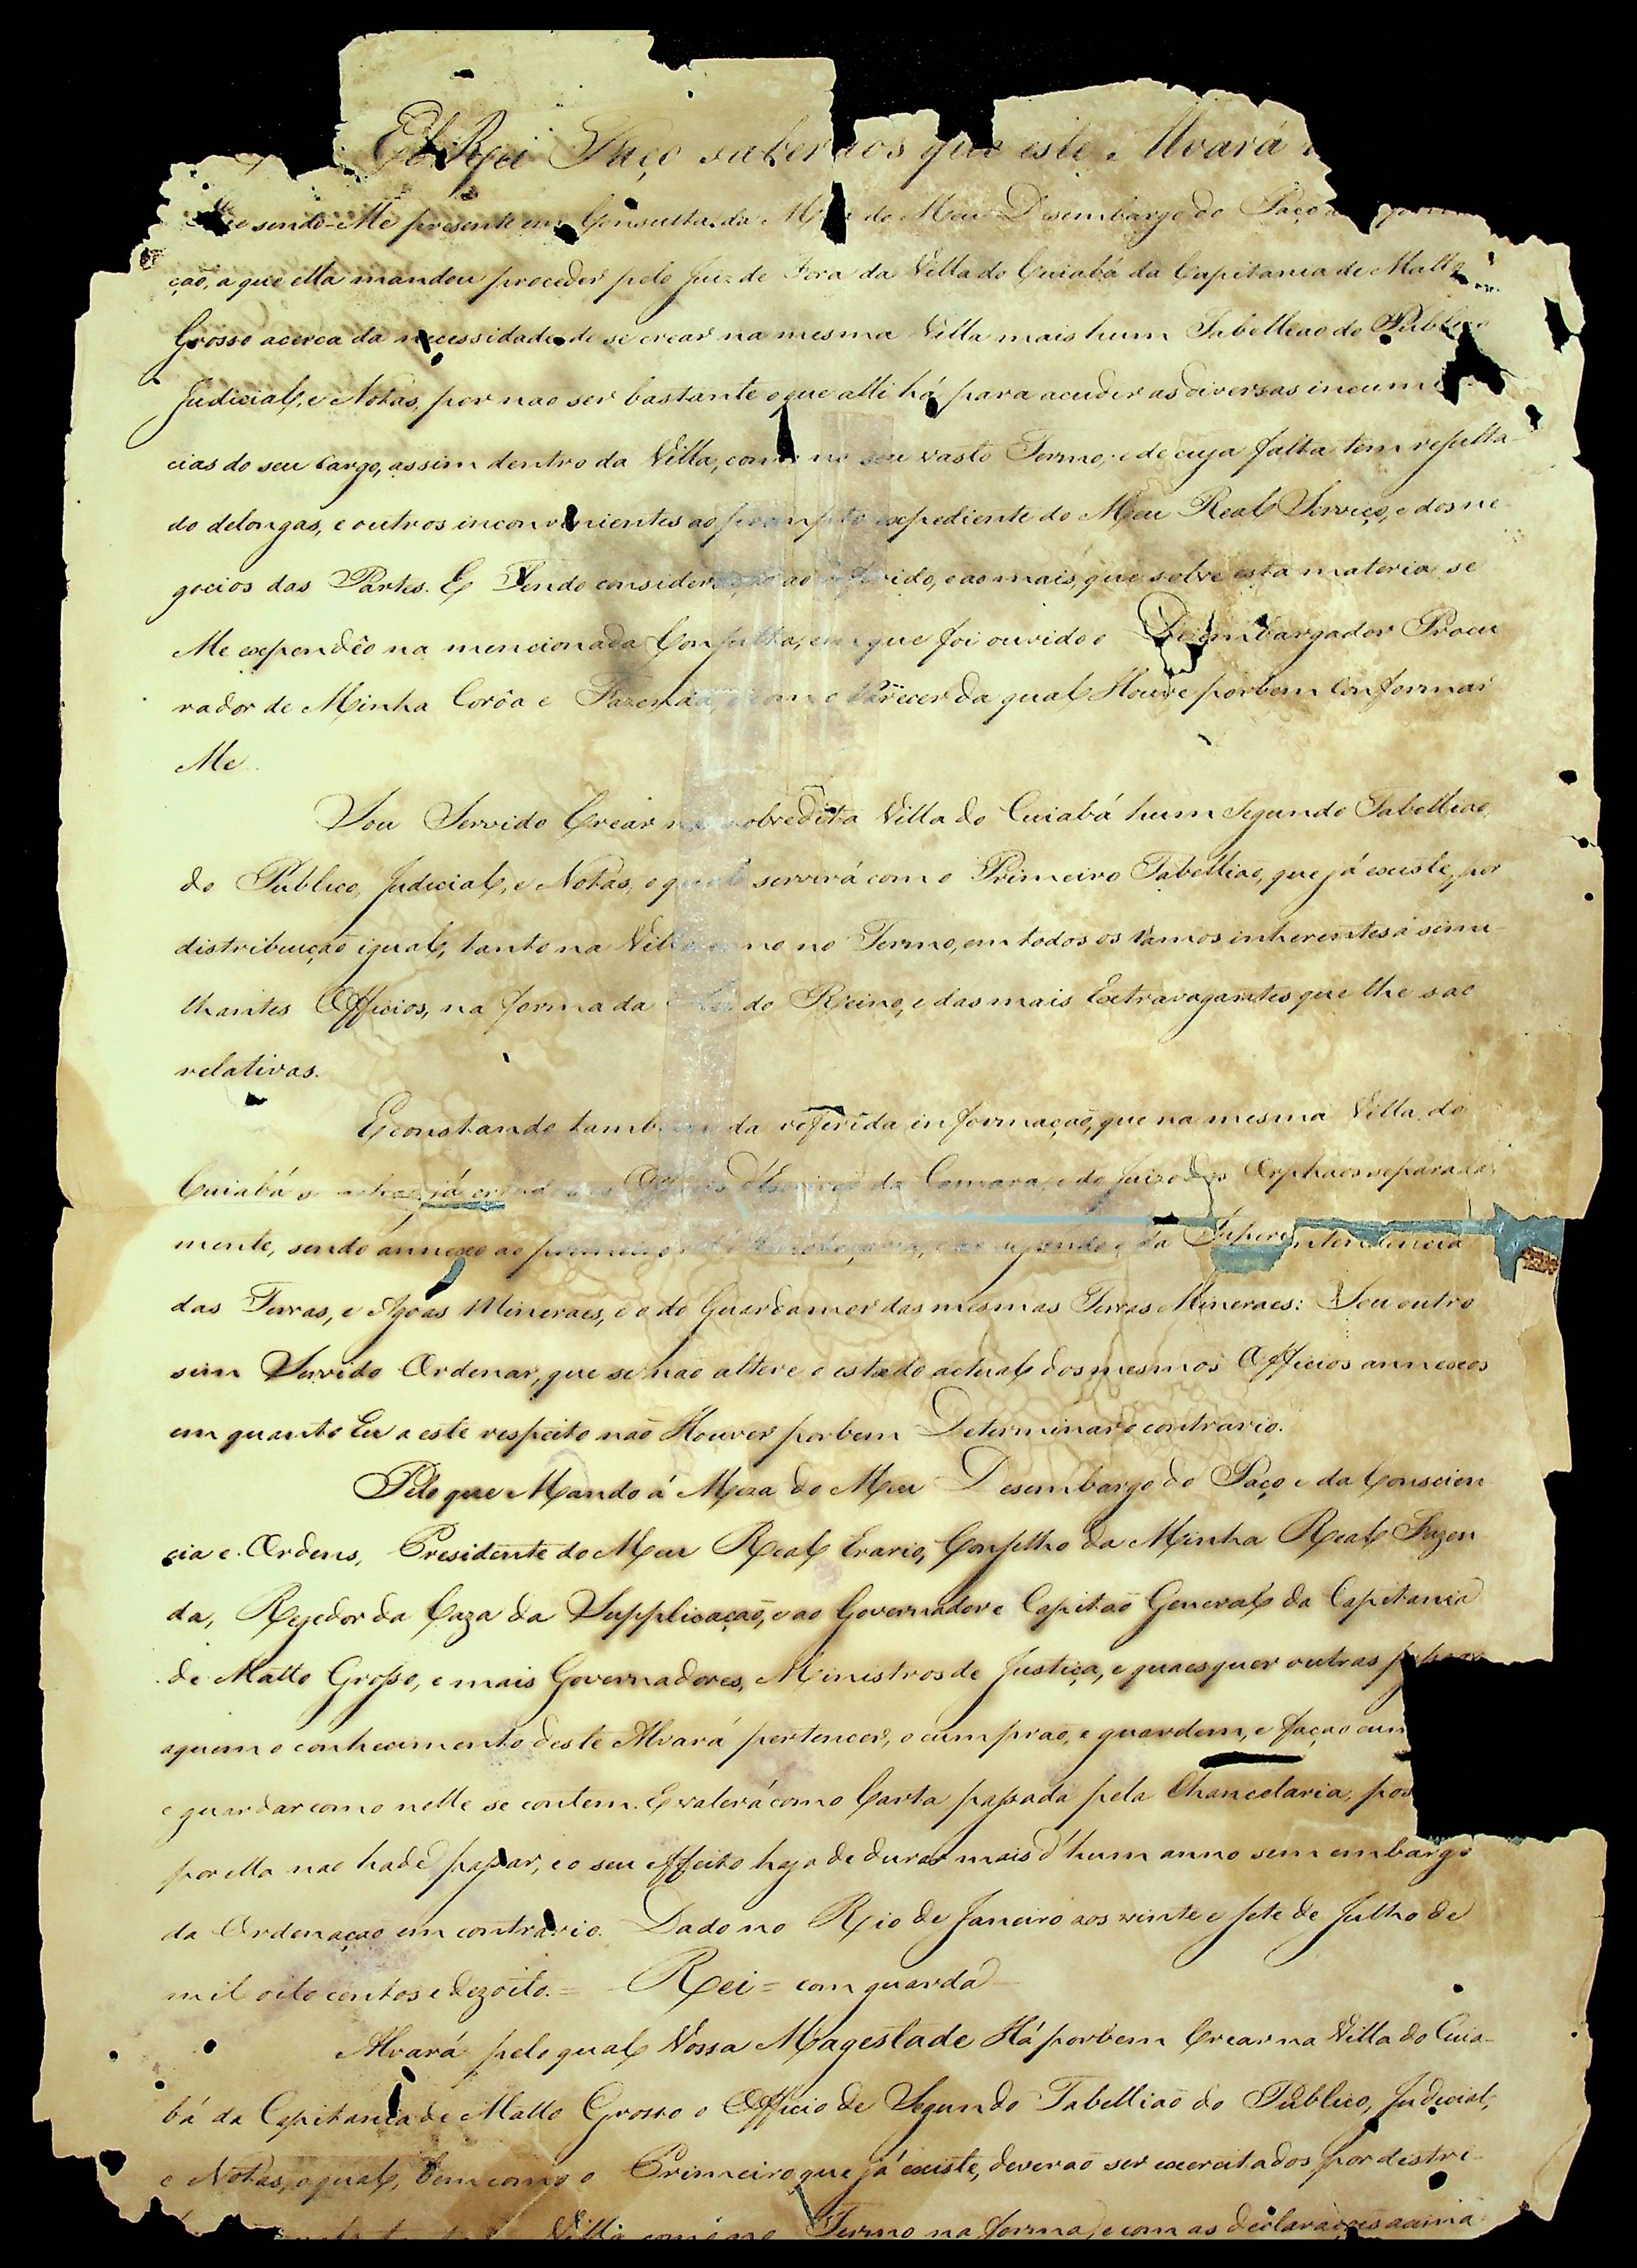 El Rei Faço saber aos que este Alvará
sendo-Me presente em Consulta da Meza do Meu Desembargo do Paço a
çaõ, a que ella mandou proceder pelo Juiz de Fora da Villa do Cuiabá da Capitania de Matto
Grosso acerca da necessidade de se crear na mesma Villa mais hum Tabelleaõ do Publico
Judicial, e Notas, por naõ ser bastante o que alli há para acudir as diversas incum
cias do seu cargo, assim dentro da Villa, como no seu vasto Termo, e de cuja falta tem resulta-
do delongas, e outros inconvenientes ao prompto expediente do Meu Real Serviço, e dos ne
gocios das Partes. E Tendo consideraçaõ ao referido, e ao mais, que sobre esta materia se
Me expendêo na mencionada Consulta, em que foi ouvido o Desembargador Procu
rador de Minha Corôa e Fazenda, e com o Parecer da qual Houve por bem Conformar
Me.
Sou Servido Crear na sobredita Villa do Cuiabá hum Segundo Tabelliaõ
do Publico, Judicial, e Notas, o qual servirá com o Primeiro Tabelliaõ, que já existe, por
distribuiçaõ igual, tanto na Villa como no Termo, em todos os ramos inherentes á simi-
lhantes Officios, na forma da Lei do Reino, e das mais Extravagantes que lhe saõ
relativas.
E constando tambem da referida informaçaõ, que na mesma Villa do
Cuiabá se já da Camara, e do Juizo dos Orphaõs separada-
mente, sendo annexo ao e ao segundo o da Superintendencia
das Terras, e Agoas Mineraes, e o do Guardamor das mesmas Terras Mineraes: Sou outro
sim Servido Ordenar, que se naõ altere o estado actual dos mesmos Officios annexos
em quanto Eu a este respeito naõ Houver por bem Determinar o contrario.
Pelo que Mando á Meza do Meu Desembargo do Paço e da Conscien
cia e Ordens, Presidente do Meu Real Erario, Conselho da Minha Real Fazen
da, Regedor da Caza da Supplicaçaõ, e ao Governador e Capitaõ General da Capitania
de Matto Grosso, e mais Governadores, Ministros de Justiça, e quaesquer outras pessoas
aquem o conhecimento deste Alvará pertencer, o cumpraõ, e guardem, e façaõ cum
e guardar como nelle se contem. E valerá como Carta passada pela Chancelaria, pos
por ella naõ hade passar, e o seu effeito haja de durar mais d'hum anno sem embargo
da Ordenaçaõ em contrario. Dado no Rio de Janeiro aos vinte e sete de Julho de
mil oito centos e dezoito. = Rei = com guarda
Alvará pelo qual Vossa Magestade Há por bem Crear na Villa do Cuia-
bá da Capitania de Matto Grosso o Officio de Segundo Tabelliaõ do Publico, Judicial,
e Notas, o qual, bem como o Primeiro que já existe, deveraõ ser exercitados por destri-
Villa como no Termo na forma, e com as declaraçoes acima